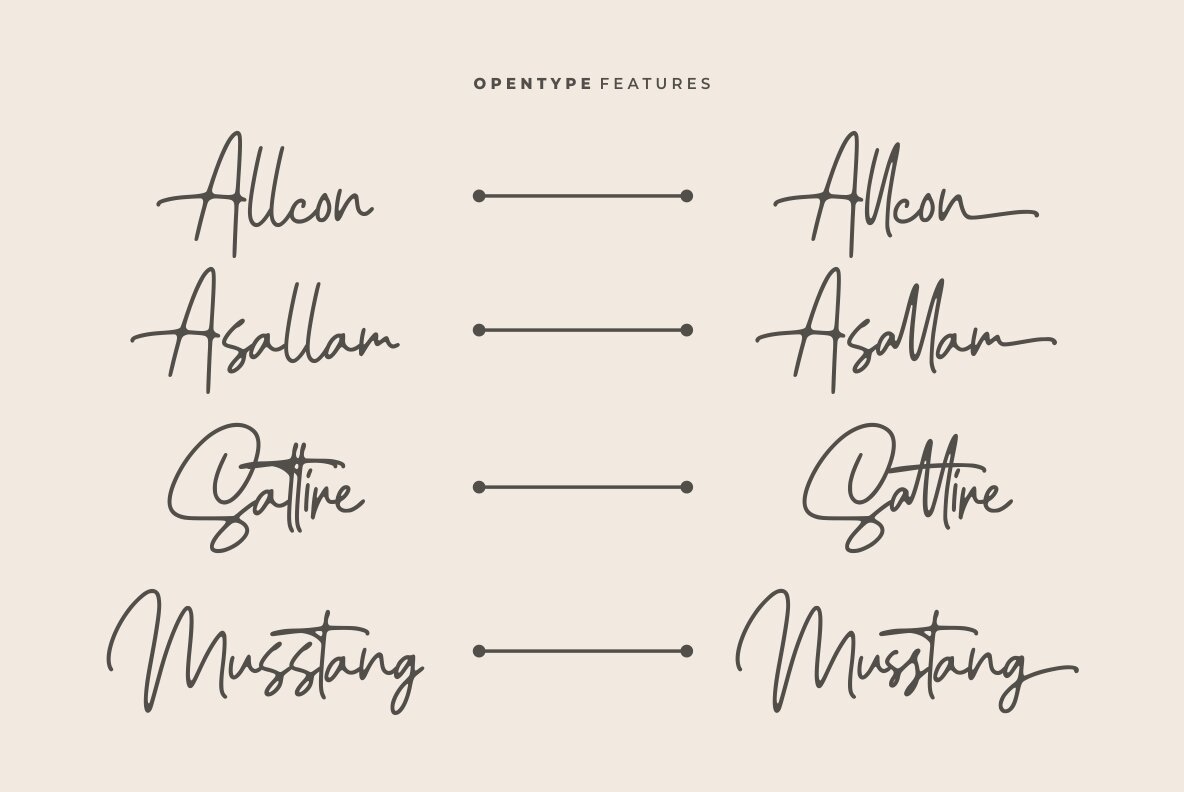 OPENTYPE FEATURES
Allcon Allcon
Asallam Asallam
Sattire Sattire
Musstang Musstang